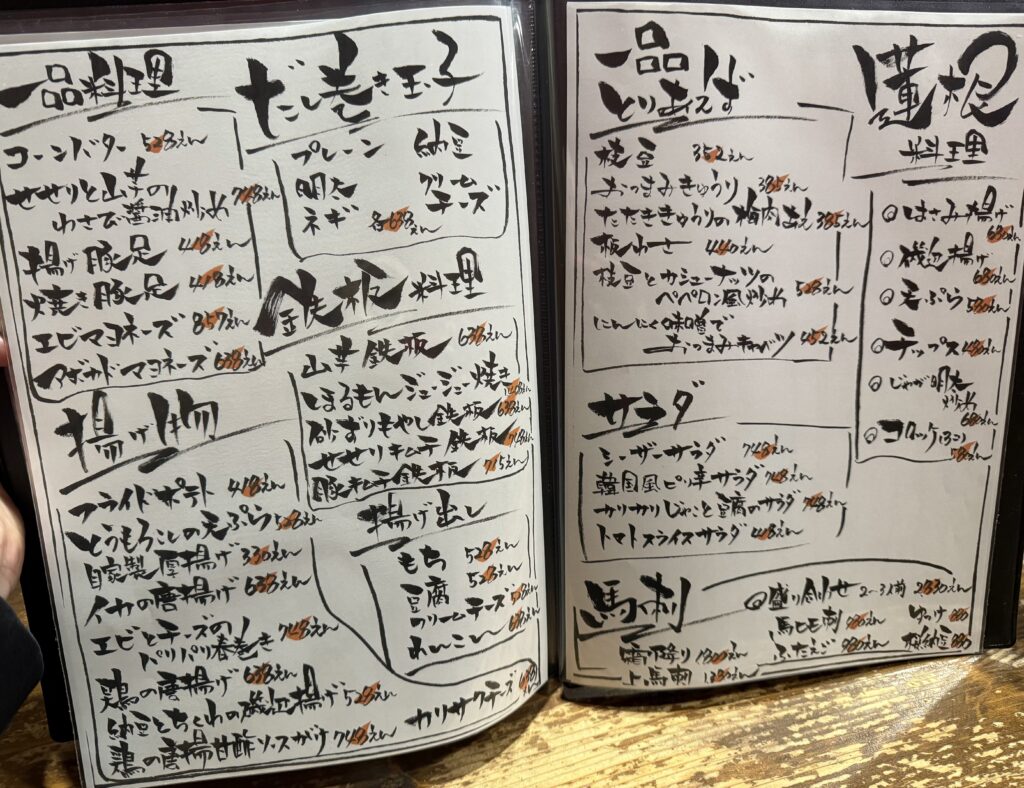 一品料理
コーンバター 528えん
せせりと山芋の
わさび醤油炒め 748えん
揚げ豚足 418えん
焼き豚足 418えん
エビマヨネーズ 857えん
アボカドマヨネーズ 638えん
揚げ物
フライドポテト 418えん
とうもろこしの天ぷら 528えん
自家製厚揚げ 330えん
イカの唐揚げ 638えん
エビとチーズの
パリパリ春巻き 748えん
鶏の唐揚げ 638えん
納豆とちくわの磯辺揚げ 528えん
鶏の唐揚甘酢ソースがけ 748えん
カリサクチーズ
だし巻き玉子
プレーン
明太
ネギ
納豆
クリーム
チーズ
各638えん
鉄板料理
山芋鉄板 638えん
ほるもんジュージュー焼き
砂ずりもやし鉄板 638えん
せせりキムチ鉄板 748えん
豚キムチ鉄板 715えん
揚げ出し
もち 528えん
豆腐 528えん
クリームチーズ
れんこん
一品
とりあえず
枝豆 352えん
おつまみきゅうり 385えん
たたききゅうりの梅肉あえ 385えん
板わさ 440えん
枝豆とカシューナッツの
ペペロン風炒め 528えん
にんにく味噌で
おつまみキャベツ 452えん
サラダ
シーザーサラダ 748えん
韓国風ピリ辛サラダ 748えん
カリカリじゃこと豆腐のサラダ 748えん
トマトスライスサラダ 418えん
蓮根
料理
はさみ揚げ
680えん
磯辺揚げ
680えん
天ぷら 580えん
チップス 480えん
じゃが明太
炒め
680えん
コロッケ(3コ)
580えん
馬刺
盛り合わせ 2〜3人前
霜降り
上馬刺
馬ヒモ刺
ふたえご
ゆっけ
桜納豆